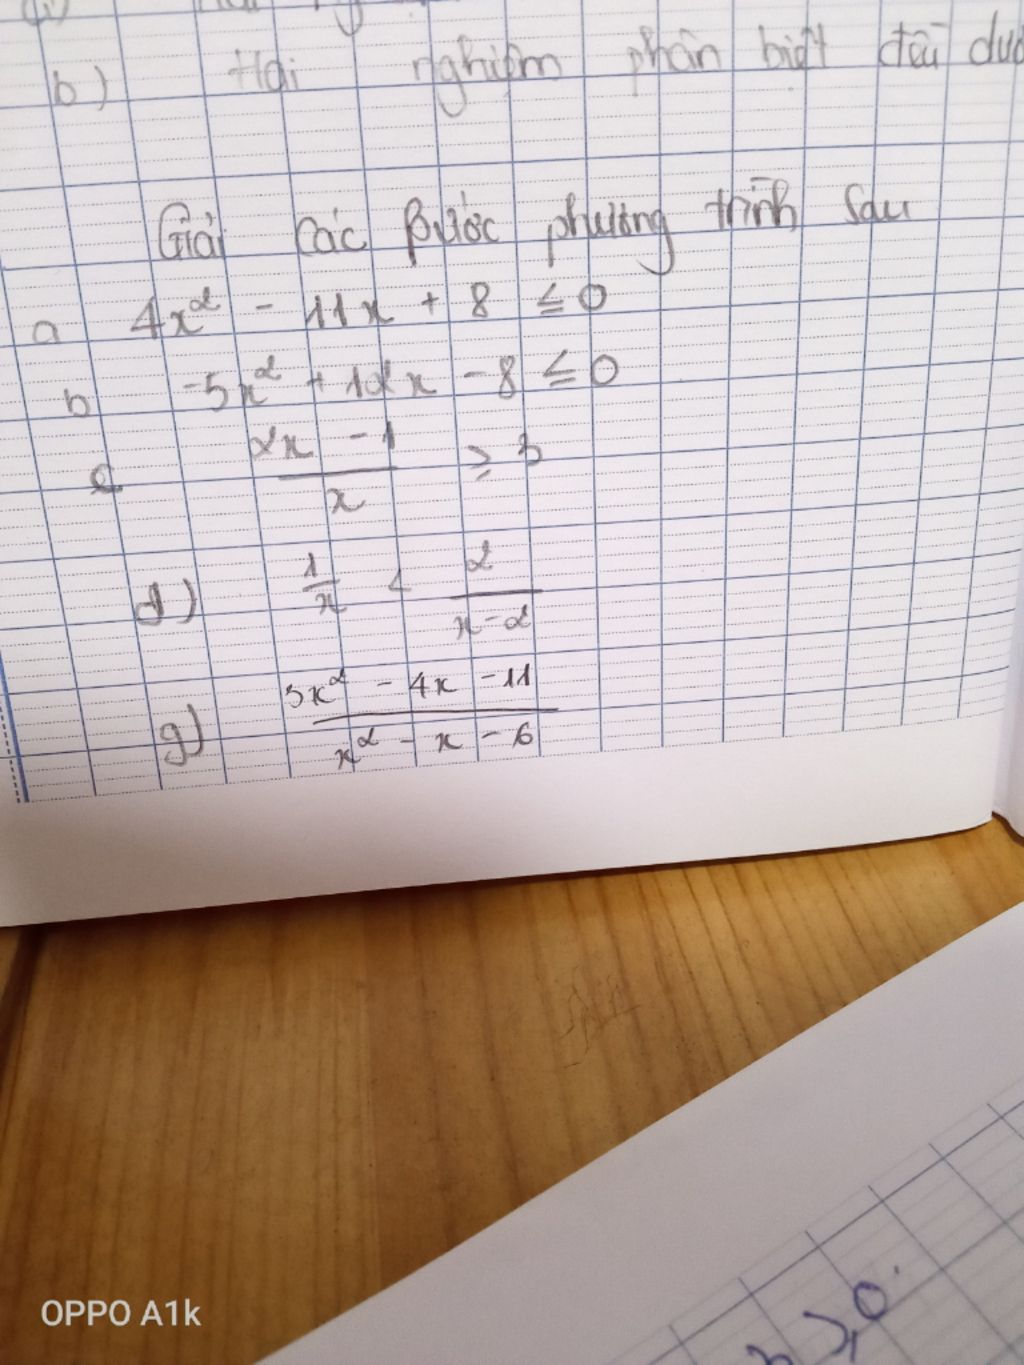 b) Hai nghiệm phân biệt đều
Giải các Bước phương trình sau
a 4x² - 11x + 8 ≤ 0
b -5x² + 12x - 8 ≤ 0
c 2x - 1 / x ≥ 3
d) 1/x < 2 / x-2
g) 3x² - 4x - 11 / x² - x - 6
OPPO A1k